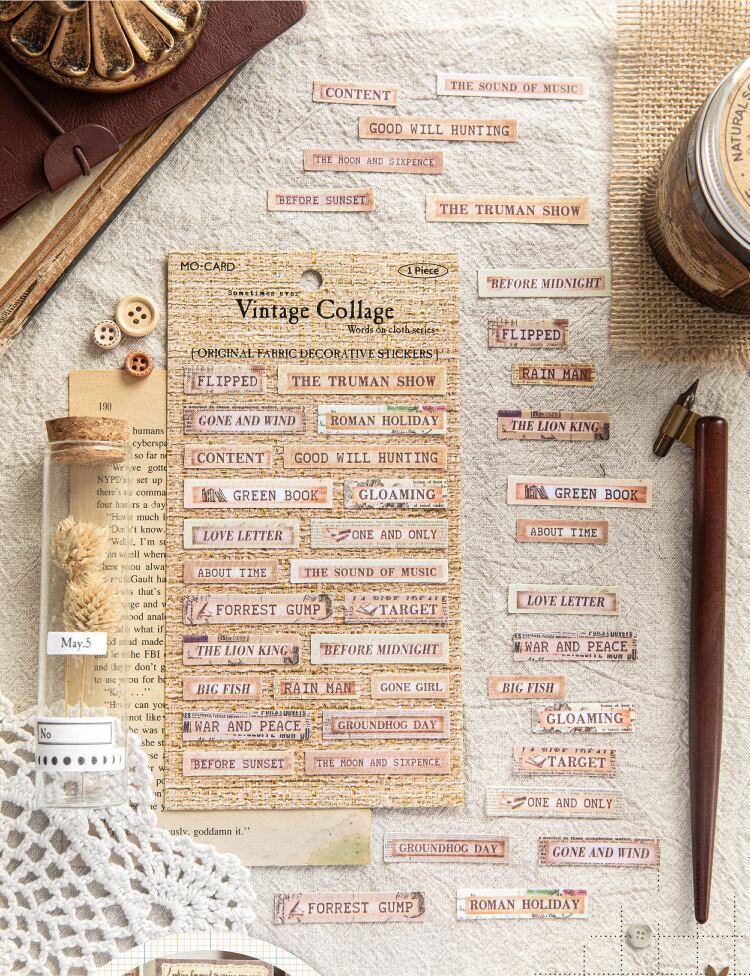 CONTENT
THE SOUND OF MUSIC
GOOD WILL HUNTING
THE MOON AND SIXPENCE
BEFORE SUNSET
THE TRUMAN SHOW
NATURAL
MO·CARD
1 Piece
Sometimes ever
Vintage Collage
Words on cloth series
[ ORIGINAL FABRIC DECORATIVE STICKERS ]
FLIPPED
THE TRUMAN SHOW
GONE AND WIND
ROMAN HOLIDAY
CONTENT
GOOD WILL HUNTING
GREEN BOOK
GLOAMING
LOVE LETTER
ONE AND ONLY
ABOUT TIME
THE SOUND OF MUSIC
FORREST GUMP
TARGET
THE LION KING
BEFORE MIDNIGHT
BIG FISH
RAIN MAN
GONE GIRL
WAR AND PEACE
GROUNDHOG DAY
BEFORE SUNSET
THE MOON AND SIXPENCE
BEFORE MIDNIGHT
FLIPPED
RAIN MAN
THE LION KING
GREEN BOOK
ABOUT TIME
LOVE LETTER
WAR AND PEACE
BIG FISH
GLOAMING
TARGET
ONE AND ONLY
GROUNDHOG DAY
GONE AND WIND
FORREST GUMP
ROMAN HOLIDAY
190
humans
so far
set up
four hours a day
what if
the FBI
May.5
No
goddamn it."